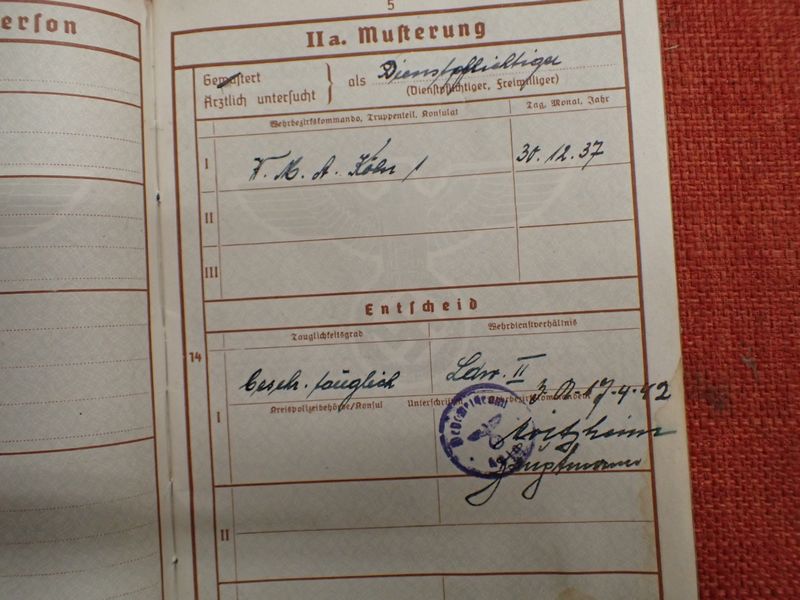 erson
5
IIa. Musterung
Gemustert
Ärztlich untersucht
als Dienstpflichtiger
(Dienstpflichtiger, Freiwilliger)
Wehrbezirkskommando, Truppenteil, Konsulat
Tag, Monat, Jahr
I
W. M. A. Köln 1
30. 12. 37
II
III
Entscheid
Tauglichkeitsgrad
Wehrdienstverhältnis
14
besch. tauglich
Ldw. II
17.4.42
Kreispolizeibehörde/Konsul
Unterschriften
I
Hauptmann
II